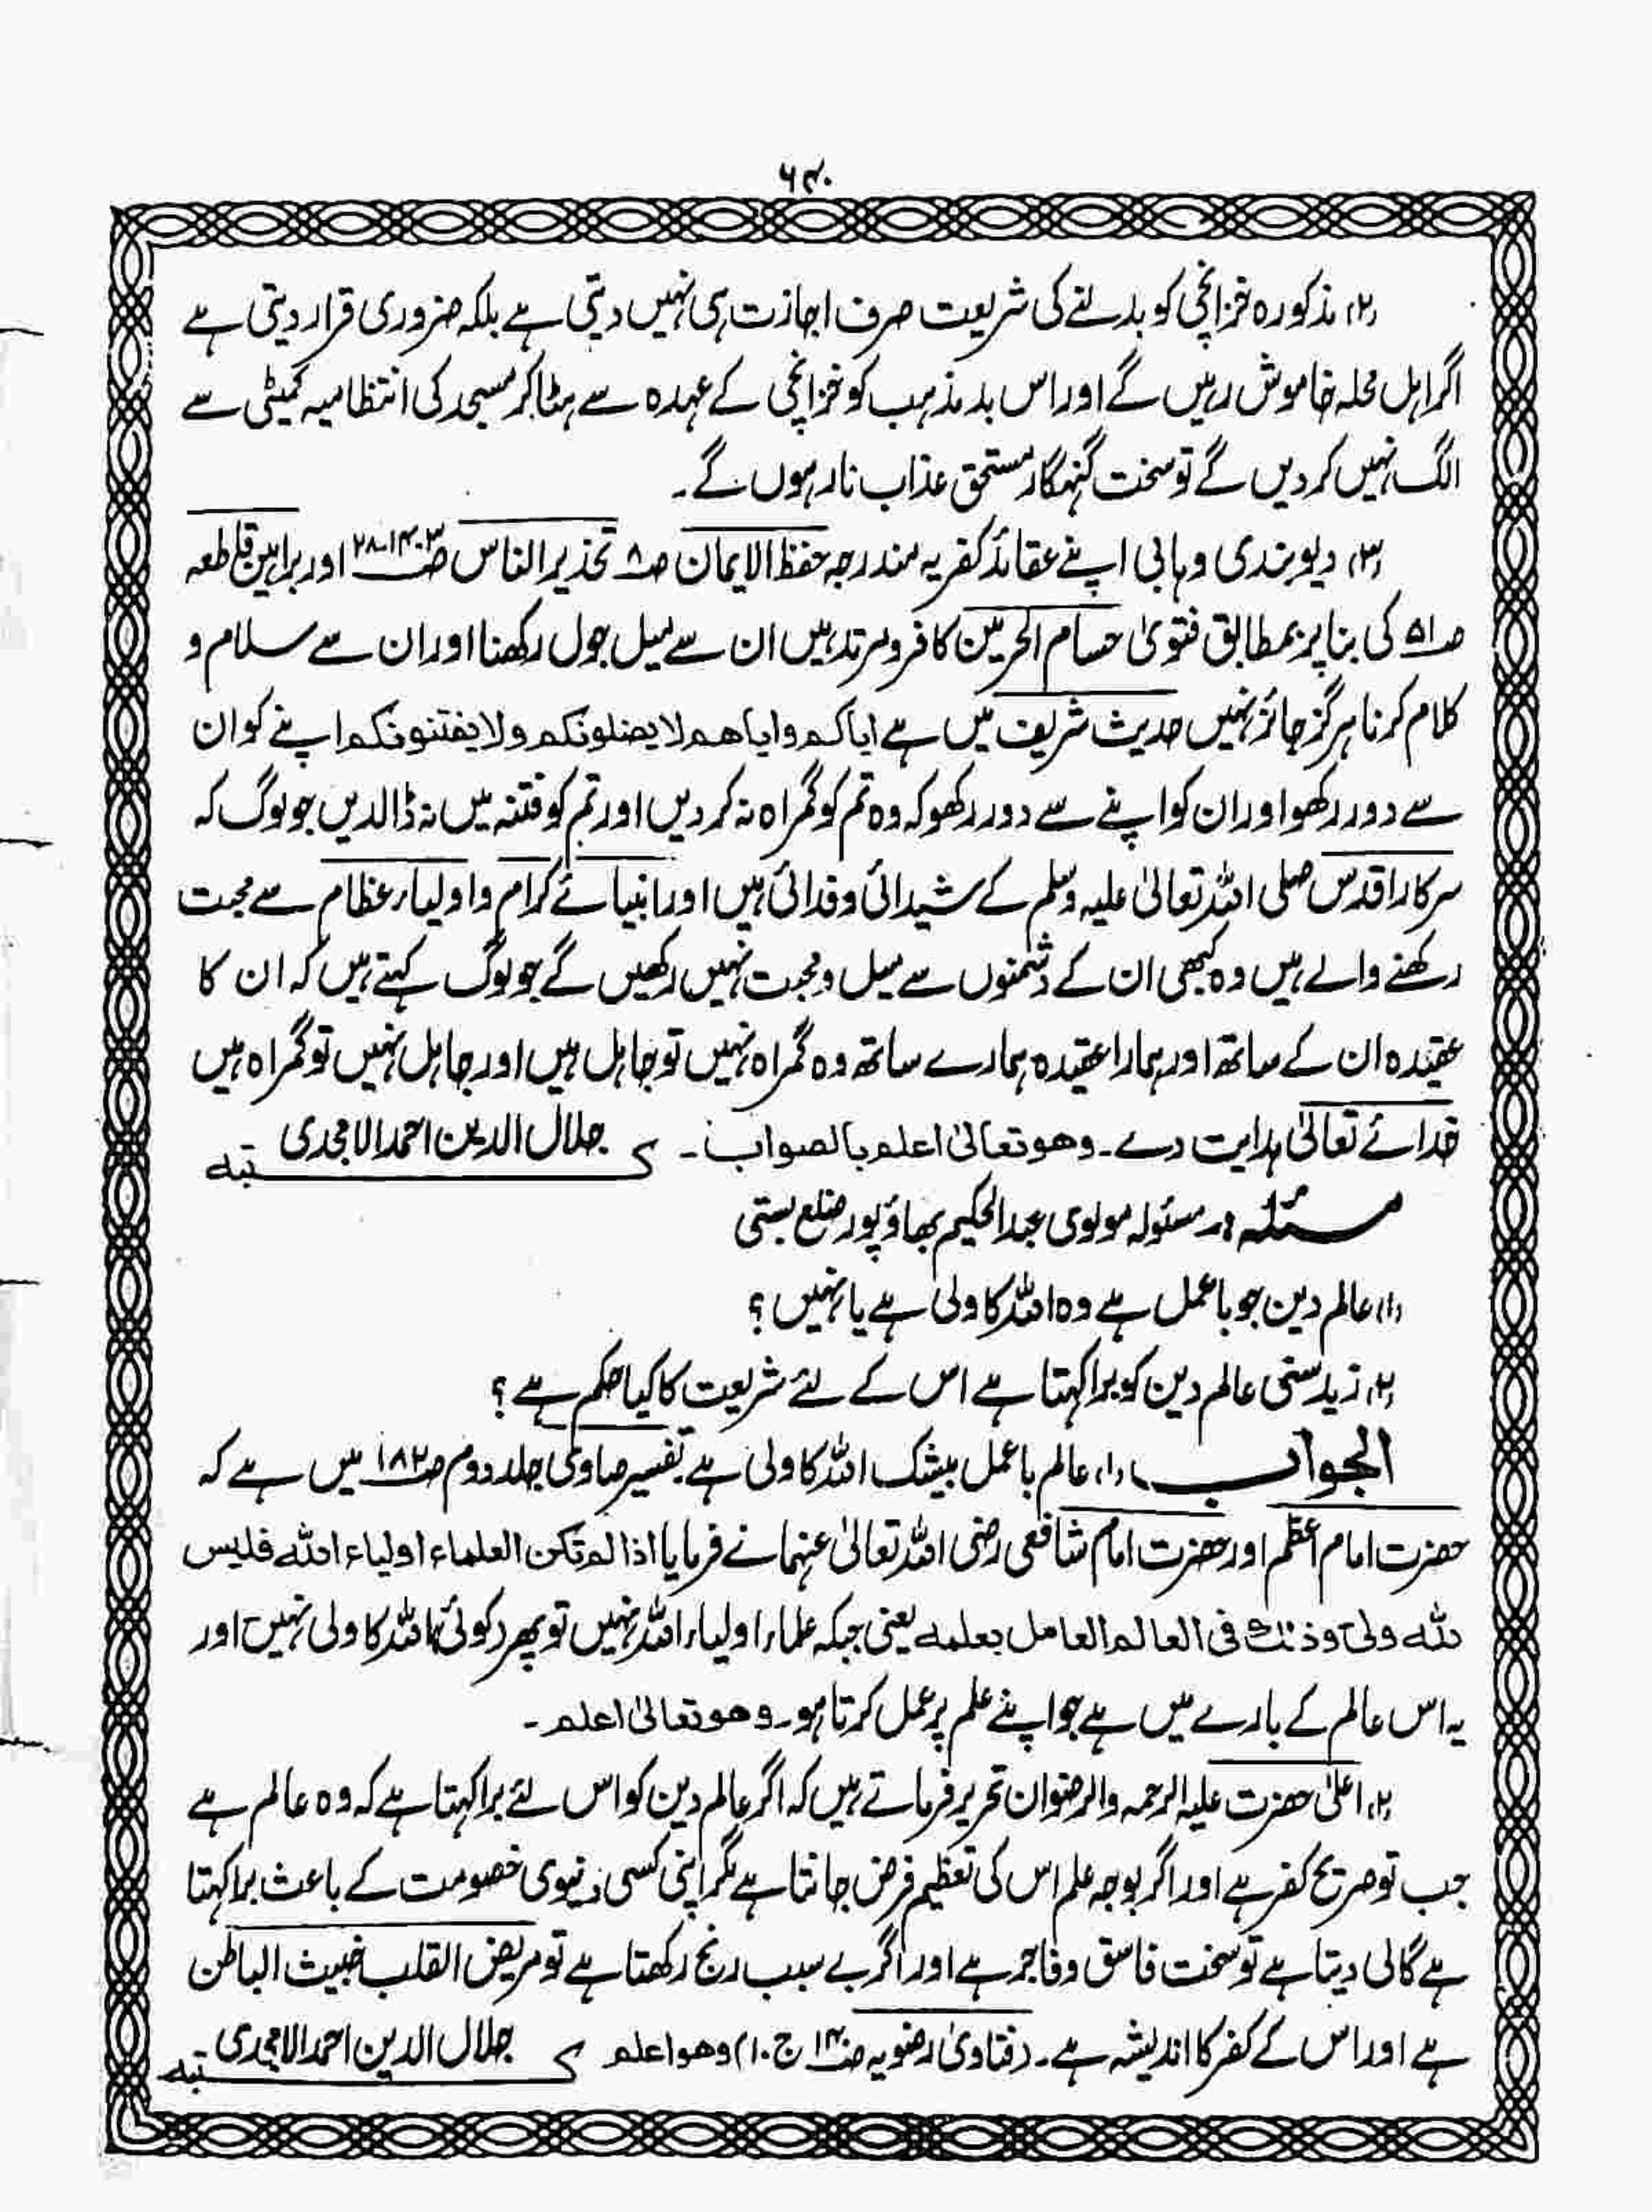 ۶۴۰
(۲) مذکورہ خزانچی کو بدلنے کی شریعت صرف اجازت ہی نہیں دیتی ہے بلکہ ضروری قرار دیتی ہے
اگر اہل محلہ خاموش رہیں گے اور اس بد مذہب کو خزانچی کے عہدہ سے ہٹا کر مسجد کی انتظامیہ کمیٹی سے
الگ نہیں کر دیں گے تو سخت گنہگار مستحق عذاب نار ہوں گے۔
(۳) دیوبندی وہابی اپنے عقائد کفریہ مندرجہ حفظ الایمان صـ۸ تحذیر الناس صـ۳-۱۴-۲۸ اور براہین قاطعہ
صـ۵۱ کی بنا پر بمطابق فتویٰ حسام الحرمین کافر و مرتد ہیں ان سے میل جول رکھنا اور ان سے سلام و
کلام کرنا ہرگز جائز نہیں حدیث شریف میں ہے ایاکم وایاھم لا یضلونکم ولا یفتنونکم اپنے کو ان
سے دور رکھو اور ان کو اپنے سے دور رکھو کہ وہ تم کو گمراہ نہ کر دیں اور تم کو فتنہ میں نہ ڈالدیں جو لوگ کہ
سرکار اقدس صلی اللہ تعالیٰ علیہ وسلم کے شیدائی و فدائی ہیں اور انبیائے کرام و اولیاء عظام سے محبت
رکھنے والے ہیں وہ کبھی ان کے دشمنوں سے میل و محبت نہیں رکھیں گے جو لوگ کہتے ہیں کہ ان کا
عقیدہ ان کے ساتھ اور ہمارا عقیدہ ہمارے ساتھ وہ گمراہ نہیں تو جاہل ہیں اور جاہل نہیں تو گمراہ ہیں
خدائے تعالیٰ ہدایت دے۔ وھو تعالیٰ اعلم بالصواب۔ کتبہ جلال الدین احمد الامجدی
مسئلہ:۔ مسئولہ مولوی عبد الحکیم بھاؤپور ضلع بستی
(۱) عالم دین جو باعمل ہے وہ اللہ کا ولی ہے یا نہیں؟
(۲) زید سنی عالم دین کو برا کہتا ہے اس کے لئے شریعت کا کیا حکم ہے؟
الجواب (۱) عالم باعمل بیشک اللہ کا ولی ہے تفسیر صاوی جلد دوم صـ۱۸۲ میں ہے کہ
حضرت امام اعظم اور حضرت امام شافعی رضی اللہ تعالیٰ عنہما نے فرمایا اذا لم تکن العلماء اولیاء اللہ فلیس
للہ ولی وذلك فی العالم العامل بعلمہ یعنی جبکہ علماء اولیاء اللہ نہیں تو پھر کوئی اللہ کا ولی نہیں اور
یہ اس عالم کے بارے میں ہے جو اپنے علم پر عمل کرتا ہو۔ وھو تعالیٰ اعلم۔
(۲) اعلیٰ حضرت علیہ الرحمہ والرضوان تحریر فرماتے ہیں کہ اگر عالم دین کو اس لئے برا کہتا ہے کہ وہ عالم ہے
جب تو صریح کفر ہے اور اگر بوجہ علم اس کی تعظیم فرض جانتا ہے مگر اپنی کسی دنیوی خصومت کے باعث برا کہتا
ہے گالی دیتا ہے تو سخت فاسق و فاجر ہے اور اگر بے سبب رنج رکھتا ہے تو مریض القلب خبیث الباطن
ہے اور اس کے کفر کا اندیشہ ہے۔ (فتاویٰ رضویہ صـ۱۴۰ ج ۱۰) وھو اعلم کتبہ جلال الدین احمد الامجدی